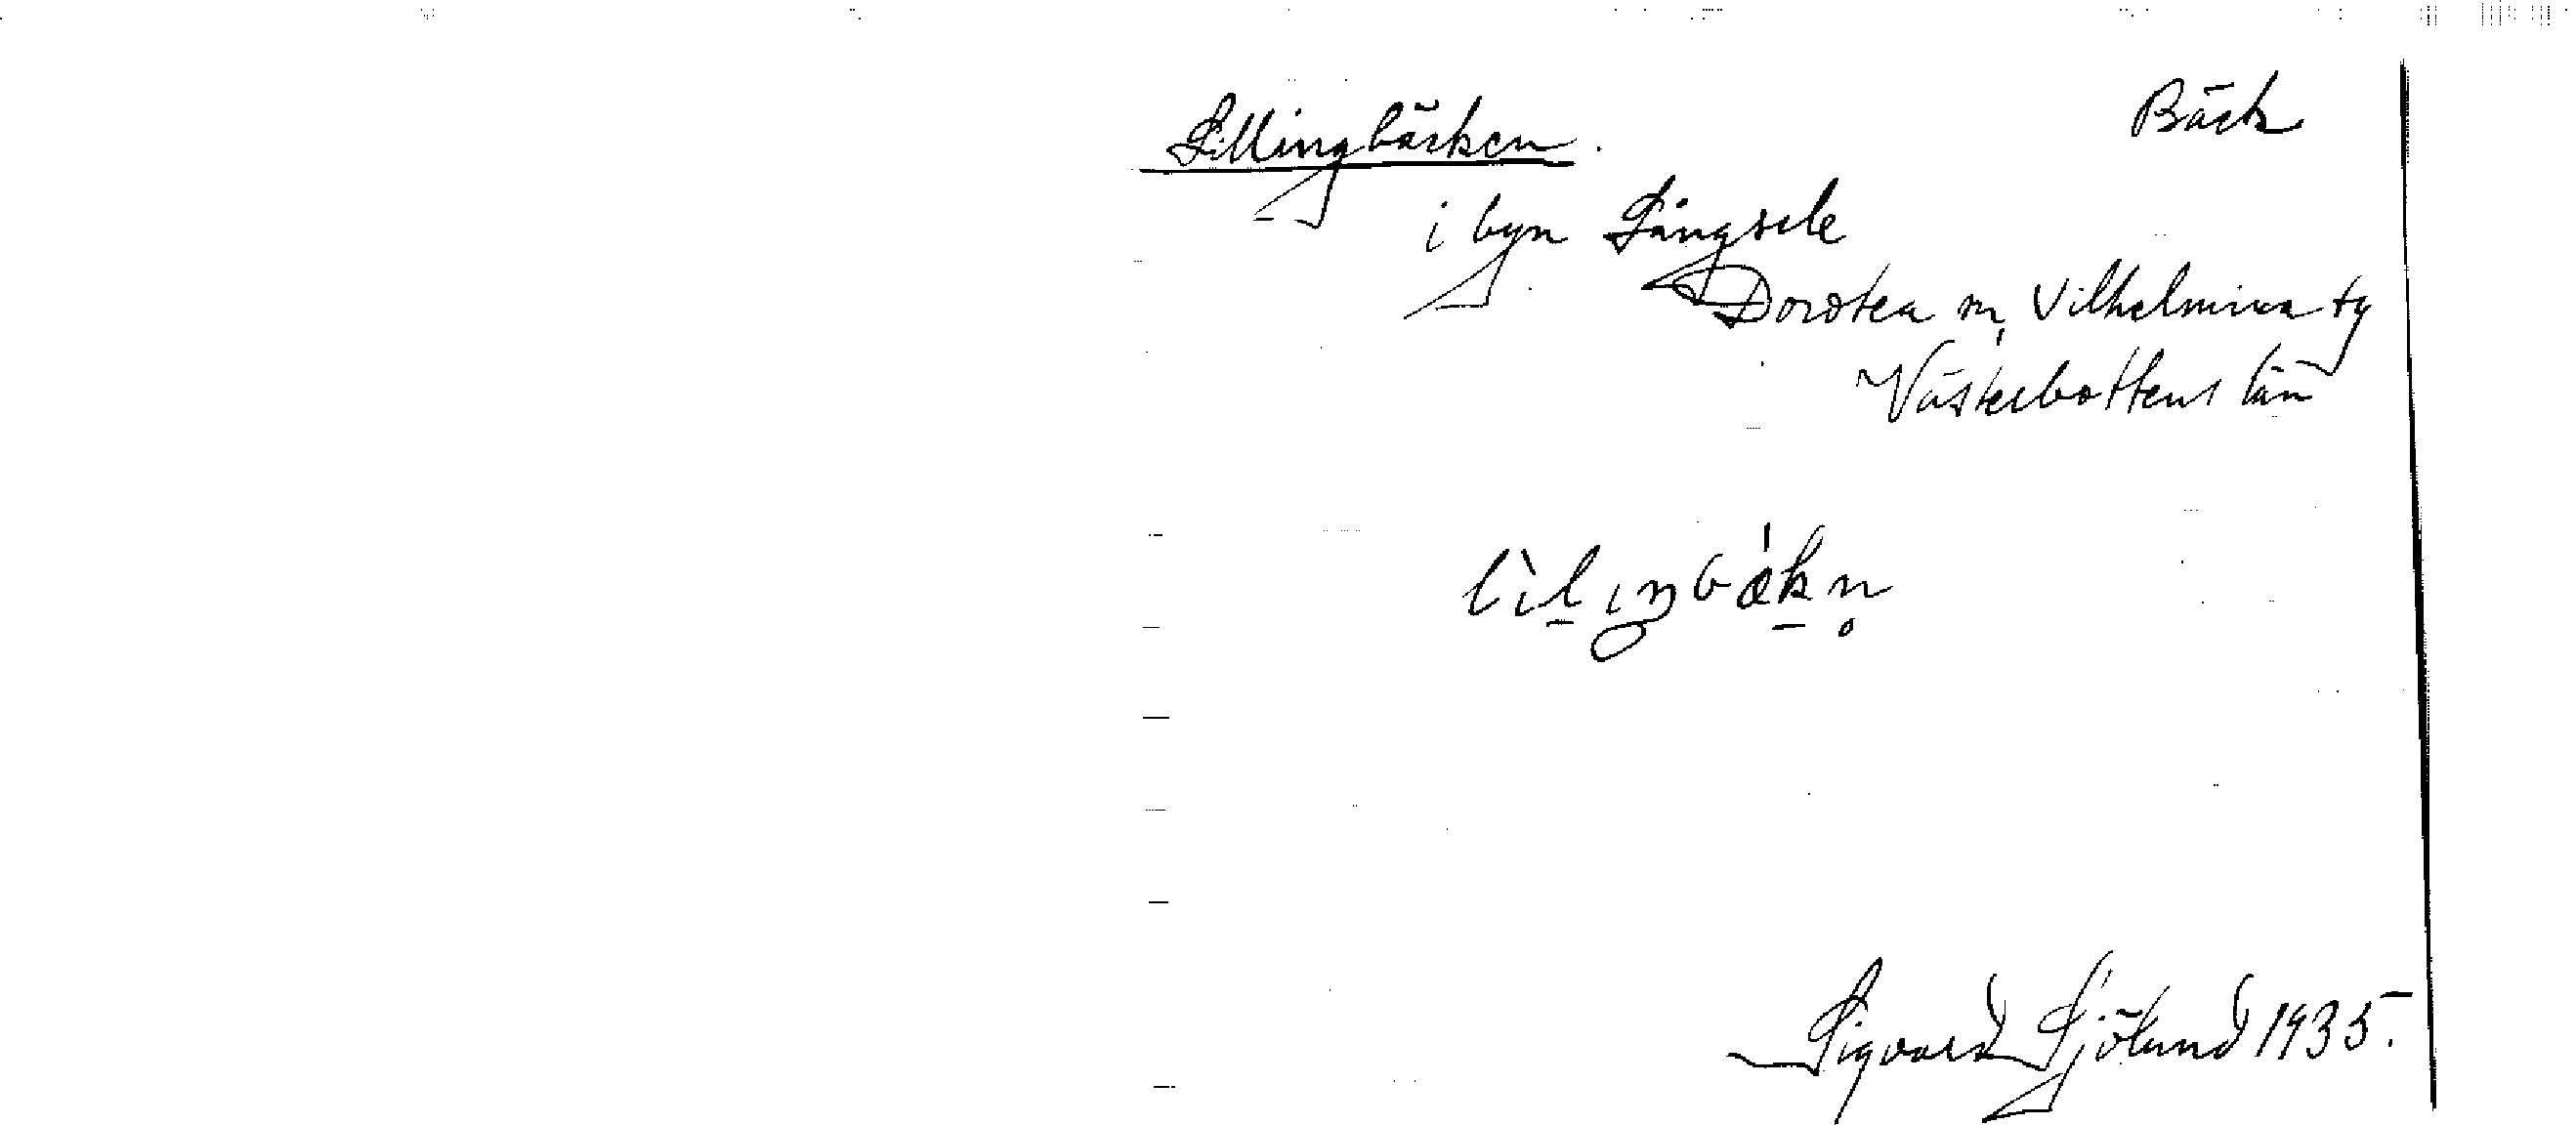 Lillingbäcken.
Bäck
i byn Långsele
Dorotea m, Vilhelmina tg
Västerbottens län
lìlıŋbǽkn̥
Sigvard Sjölund 1935.